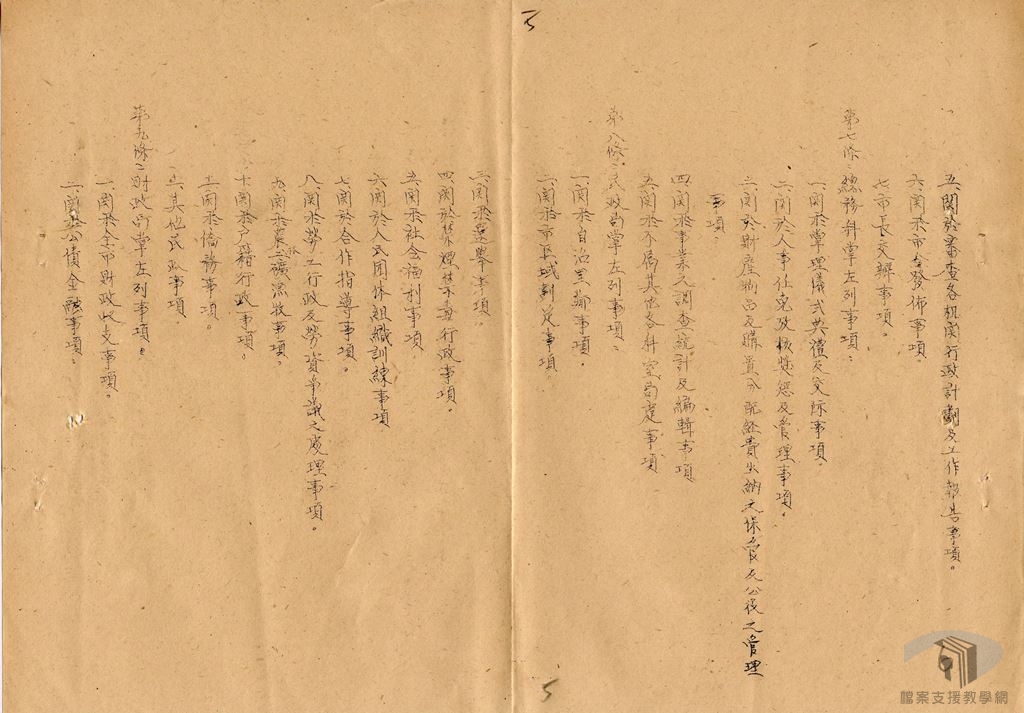 五、關於審查各機関行政計劃及工作報告事項。
六、関於市令發佈事項
七、市長交辦事項。
第七條：總務科掌左列事項：
一、関於掌理儀式典禮及交際事項。
二、関於人事任免及核奬懲及管理事項。
三、関於財產物品及購置分配経費出納之保管及公役之管理
事項。
四、関於事業之調查統計及編輯事項
五、関於不屬其他各科室局處事項
第八條：民政局掌左列事項：
一、関於自治里鄰事項
二、関於市區域劃定事項。
三、関於選舉事項。
四、関於禁煙禁毒行政事項。
五、関於社会福利事項
六、関於人民団体組織訓練事項。
七、関於合作指導事項。
八、関於勞工行政及勞資爭議之處理事項。
九、関於農林礦漁牧事項。
十、関於户籍行政事項。
土、関於僑務事項。
其他民政事項。
第九條：財政局掌左列事項：
一、関於全市財政收支事項。
二、関於公債金融事項。
5
5
檔案支援教學網